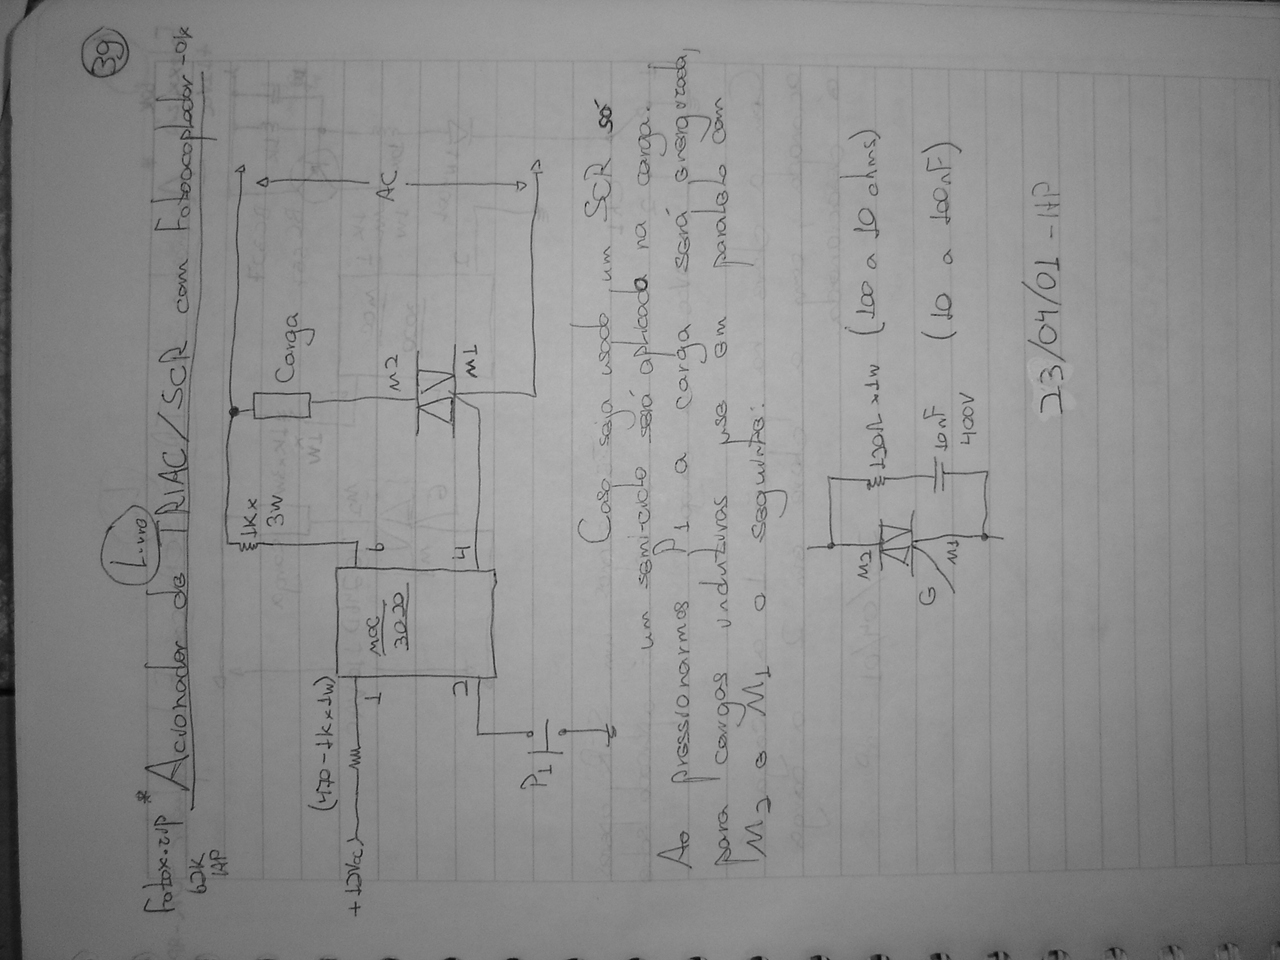 39
Livro
Fotox.zip *
62K
IAP
Acionador de TRIAC/SCR com Fotoacoplador - ok
(470 - 1K x 1W)
+12Vcc
1
2
MOC
3020
6
4
1K x
3W
Carga
M2
M1
AC
P1
Caso seja usado um SCR só
um semi-ciclo será aplicada na carga.
Ao pressionarmos P1 a carga será energizada,
para cargas indutivas use em paralelo com
M2 e M1 o seguinte:
M2
G
M1
120R x 1W (100 a 10 ohms)
10nF
400V
(10 a 100nF)
23/04/01 - IAP